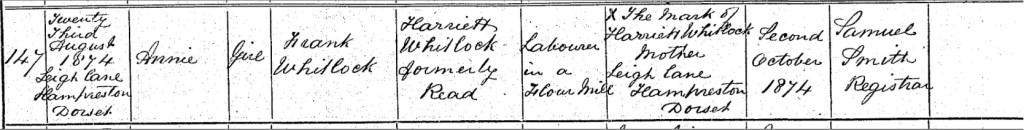 147
Twenty
Third
August
1874
Leigh Lane
Hampreston
Dorset
Annie
Girl
Frank
Whitlock
Harriett
Whitlock
formerly
Read
Labourer
in a
Flour Mill
X The Mark of
Harriett Whitlock
Mother
Leigh Lane
Hampreston
Dorset
Second
October
1874
Samuel
Smith
Registrar